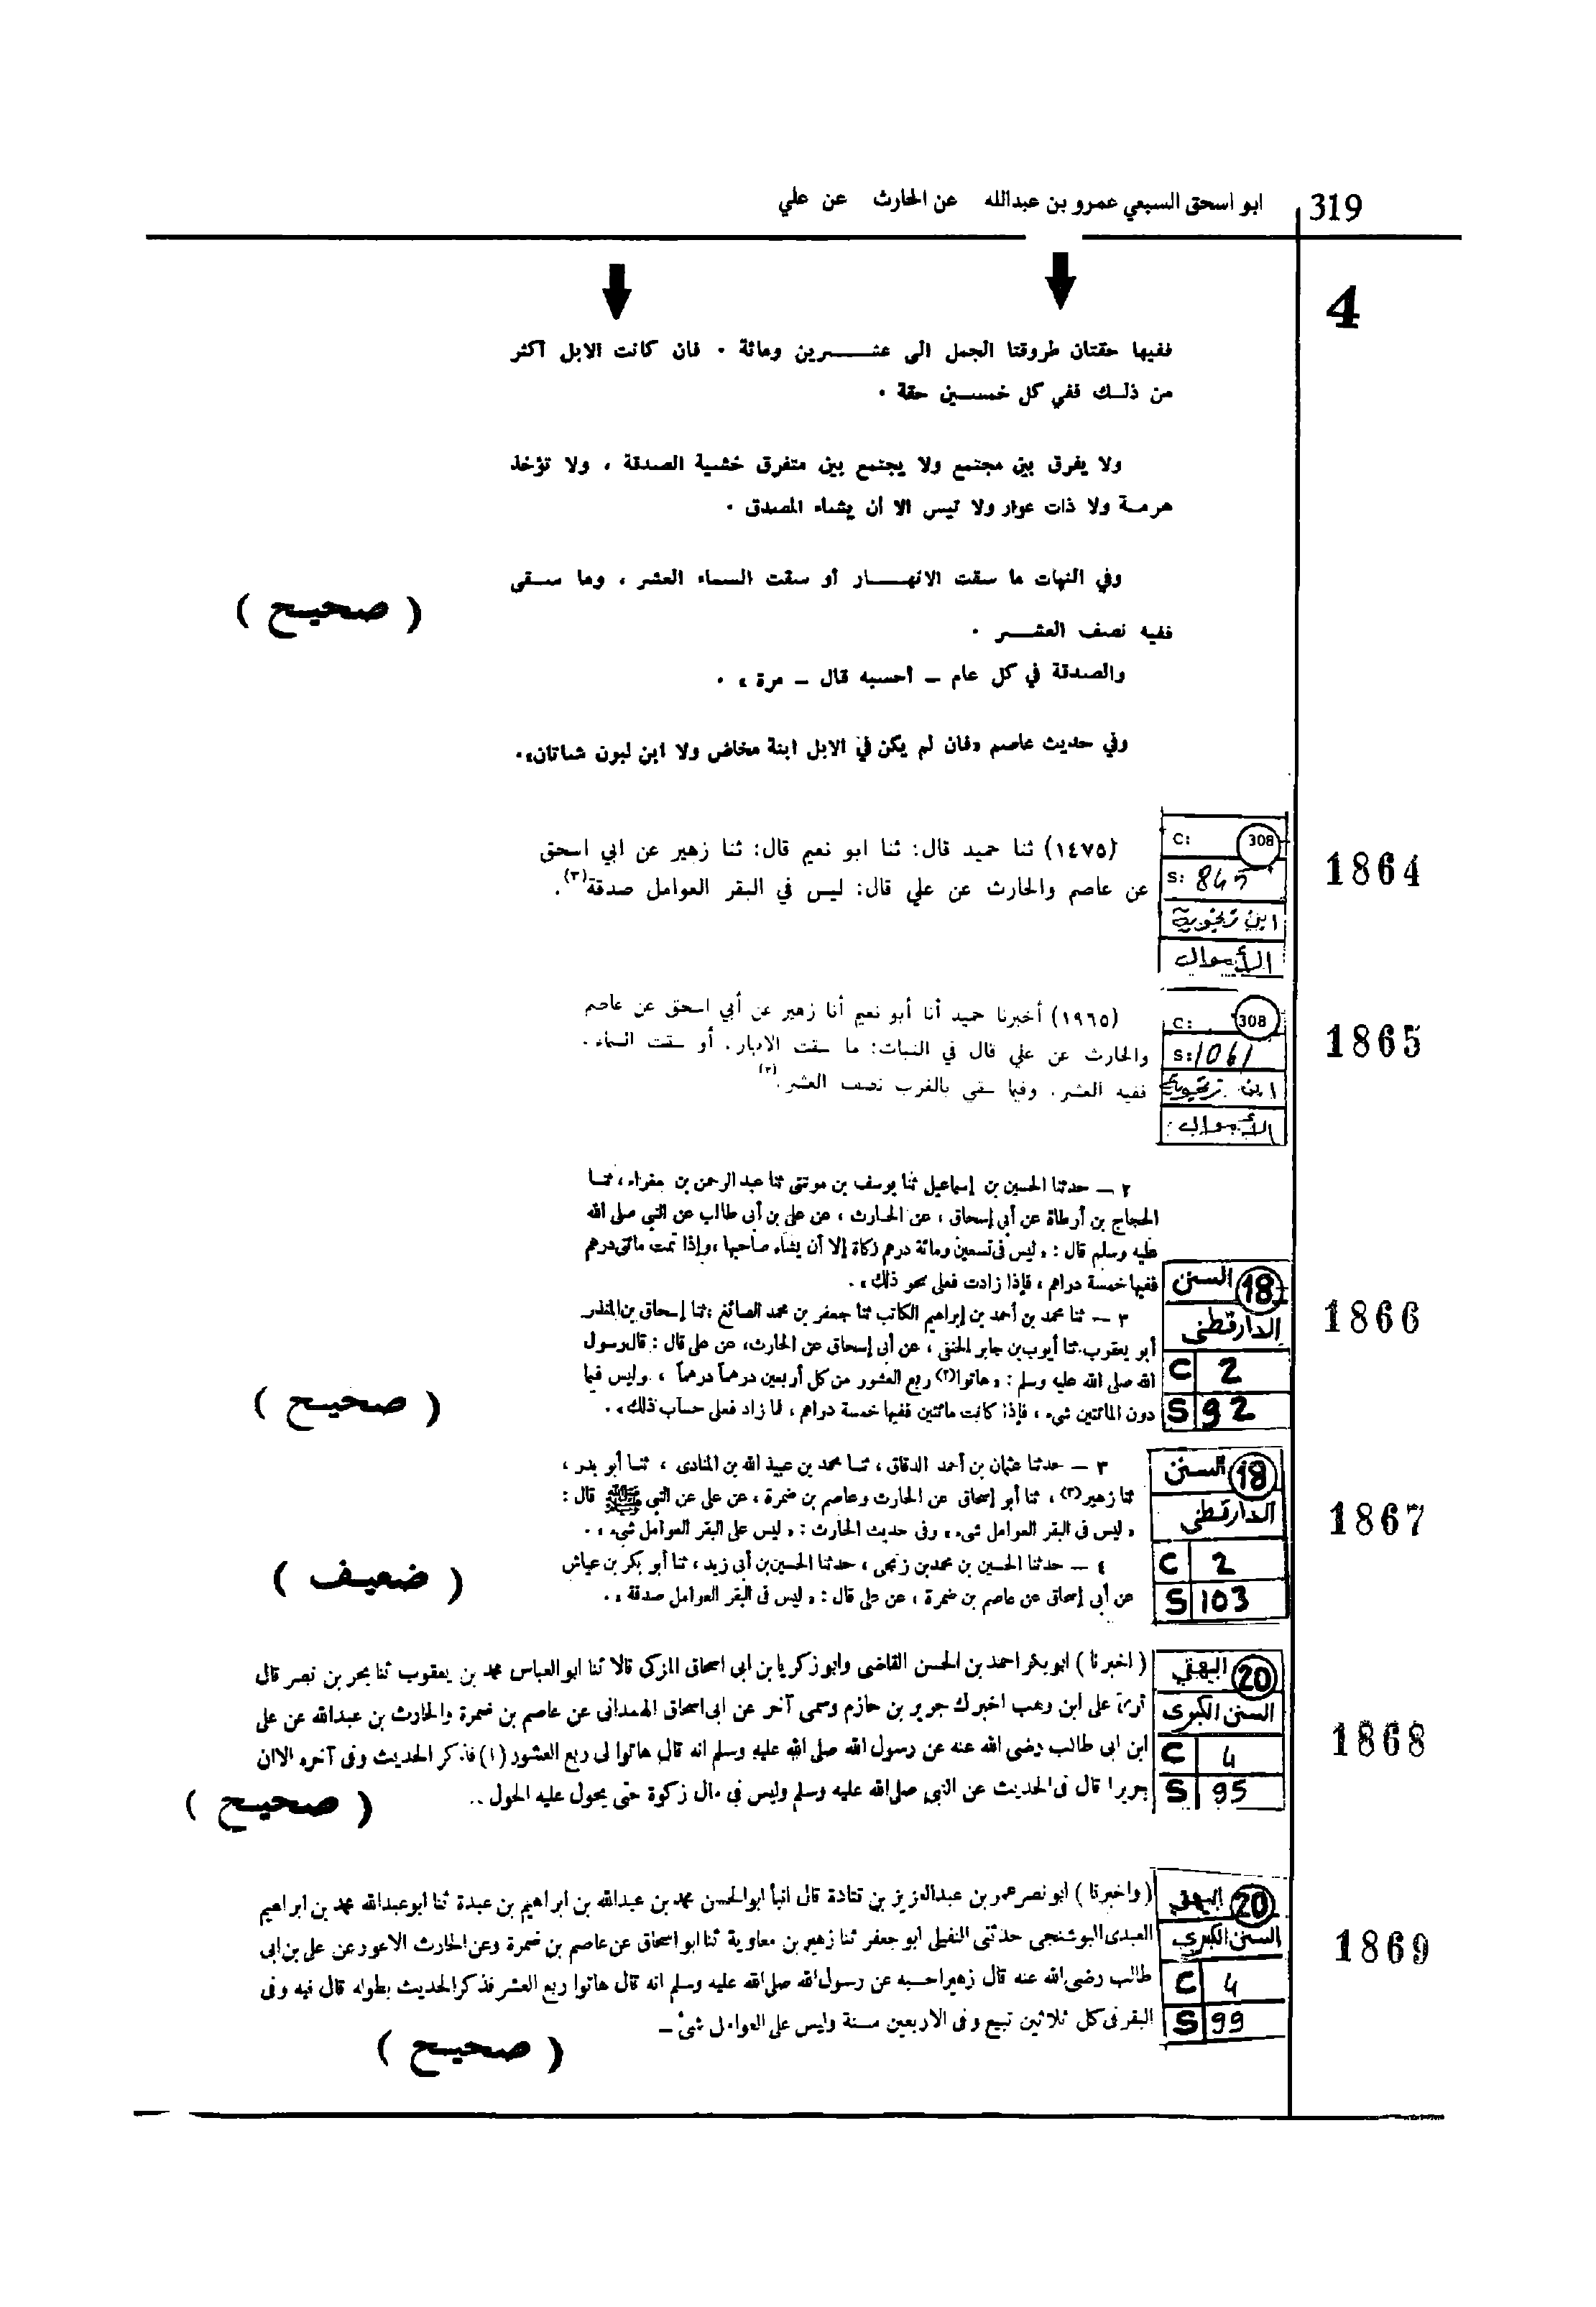 319
ابو اسحق السبعي عمرو بن عبدالله عن الحارث عن علي
4
ففيها حقتان طروقتا الجمل الى عشرين ومائة . فان كانت الابل أكثر
من ذلك ففي كل خمسين حقة .
ولا يفرق بين مجتمع ولا يجتمع بين متفرق خشية الصدقة ، ولا تؤخذ
هرمة ولا ذات عوار ولا تيس الا أن يشاء المصدق .
وفي النبات ما سقت الانهار أو سقت السماء العشر ، وما سقى
ففيه نصف العشر .
( صحيح )
والصدقة في كل عام – أحسبه قال – مرة » .
وفي حديث عاصم «فان لم يكن في الابل ابنة مخاض ولا ابن لبون شاتان» .
1864
C: 308
S: 845
ابن زنجوية
الأموال
(١٤٧٥) ثنا حميد قال: ثنا ابو نعيم قال: ثنا زهير عن ابي اسحق
عن عاصم والحارث عن علي قال: ليس في البقر العوامل صدقة(٣).
1865
C: 308
S: 1061
ابن زنجوية
الأموال
(١٩٦٥) أخبرنا حميد أنا أبو نعيم أنا زهير عن أبي اسحق عن عاصم
والحارث عن علي قال في النبات: ما سقت الانهار. أو سقت السماء.
ففيه العشر. وفيما سقي بالغرب نصف العشر.(٣)
1866
السنن 18
الدارقطني
C 2
S 92
٢ – حدثنا الحسين بن إسماعيل ثنا يوسف بن موسى ثنا عبد الرحمن بن مغراء ، ثنا
الحجاج بن أرطاة عن أبي إسحاق ، عن الحارث ، عن علي بن أبى طالب عن النبي صلى الله
عليه وسلم قال : « ليس فى تسعين ومائة درهم زكاة إلا أن يشاء صاحبها ، وإذا تمت مائتى درهم
ففيها خمسة دراهم ، فإذا زادت فعلى نحو ذلك » .
٣ – ثنا محمد بن أحمد بن إبراهيم الكاتب ثنا جعفر بن محمد الصائغ ، ثنا إسحاق بن المنذر
أبو يعقوب ، ثنا أيوب بن جابر الحنفى ، عن أبى إسحاق عن الحارث، عن على قال : قال رسول
الله صلى الله عليه وسلم : « هاتوا(٢) ربع العشور من كل أربعين درهماً درهماً ، وليس فيما
دون المائتين شىء ، فإذا كانت مائتين ففيها خمسة دراهم ، فما زاد فعلى حساب ذلك » .
( صحيح )
1867
السنن 18
الدارقطني
C 2
S 103
٣ – حدثنا عثمان بن أحمد الدقاق ، ثنا محمد بن عبيد الله بن المنادى ، ثنا أبو بدر ،
ثنا زهير(٣) ، ثنا أبو إسحاق عن الحارث وعاصم بن ضمرة ، عن على عن النبي ﷺ قال :
« ليس فى البقر العوامل شىء » ، وفى حديث الحارث : « ليس على البقر العوامل شىء » .
٤ – حدثنا الحسين بن محمد بن زنجى ، حدثنا الحسين بن أبى زيد ، ثنا أبو بكر بن عياش
عن أبى إسحاق عن عاصم بن ضمرة ، عن على قال : « ليس فى البقر العوامل صدقة » .
( ضعيف )
1868
البيهقي 20
السنن الكبرى
C 4
S 95
( اخبرنا ) ابوبكر احمد بن الحسن القاضى وابو زكريا بن ابى اسحاق المزكى قالا ثنا ابو العباس محمد بن يعقوب ثنا بحر بن نصر قال
قرئ على ابن وهب اخبرك جرير بن حازم وسمى آخر عن ابى اسحاق الهمدانى عن عاصم بن ضمرة والحارث بن عبدالله عن على
ابن ابى طالب رضى الله عنه عن رسول الله صلى الله عليه وسلم انه قال هاتوا لى ربع العشور (١) فذكر الحديث وفى آخره الا ان
جريرا قال فى الحديث عن النبي صلى الله عليه وسلم وليس فى مال زكوة حتى يحول عليه الحول ..
( صحيح )
1869
البيهقي 20
السنن الكبرى
C 4
S 99
( واخبرنا ) ابو نصر عمر بن عبدالعزيز بن قتادة قال انبأ ابوالحسن محمد بن عبدالله بن ابراهيم بن عبدة ثنا ابوعبدالله محمد بن ابراهيم
العبدى البوشنجى حدثنى النفيلى ابو جعفر ثنا زهير بن معاوية ثنا ابو اسحاق عن عاصم بن ضمرة وعن الحارث الاعور عن على بن ابى
طالب رضى الله عنه قال زهير احسبه عن رسول الله صلى الله عليه وسلم انه قال هاتوا ربع العشر فذكر الحديث بطوله قال فيه وفى
البقر فى كل ثلاثين تبيع وفى الاربعين مسنة وليس على العوامل شئ –
( صحيح )